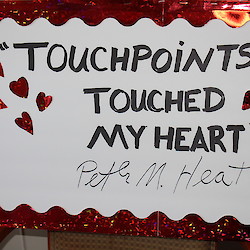 "TOUCHPOINTS
TOUCHED
MY HEART
M. Heat